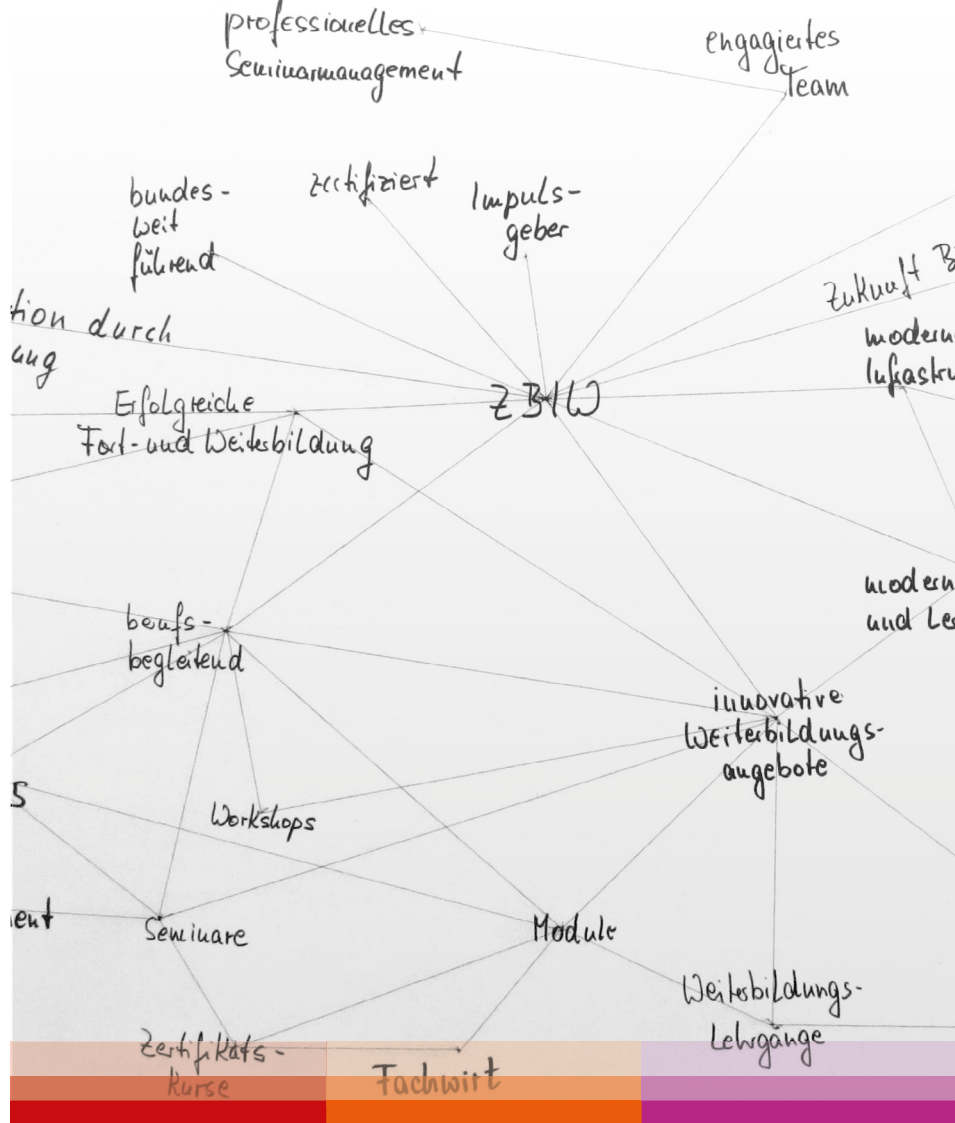 professionelles
Seminarmanagement
engagiertes
Team
bundes-
weit
führend
zertifiziert
Impuls-
geber
Zukunft B
tion durch
ung
modern
Infrastru
ZBIW
Erfolgreiche
Fort- und Weiterbildung
modern
und Les
berufs-
begleitend
innovative
Weiterbildungs-
angebote
S
Workshops
ent
Seminare
Module
Weiterbildungs-
Lehrgänge
Zertifikats-
kurse
Fachwirt